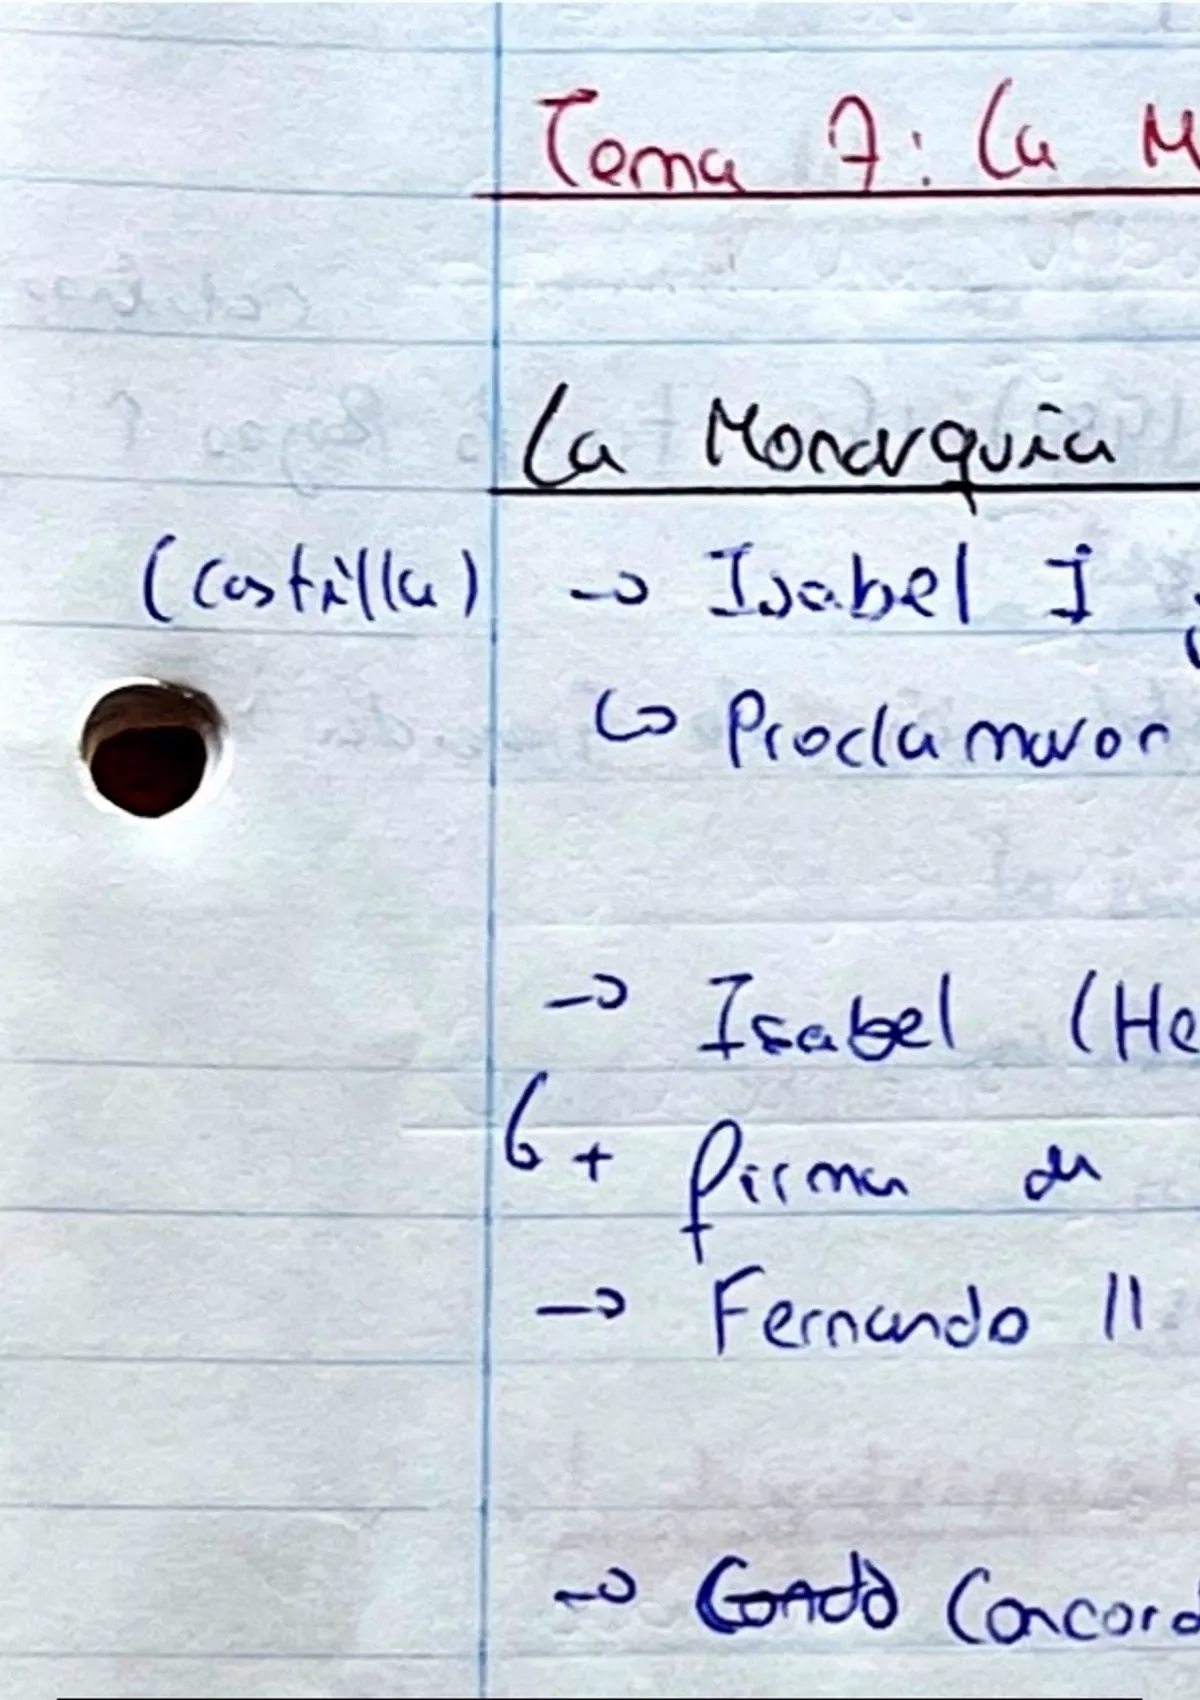 Tema 7: La M
La Monarquía
(Castilla) → Isabel I y
↪ Proclamaron
→ Isabel (He
↳ + firma de
→ Fernando II
→ Concord